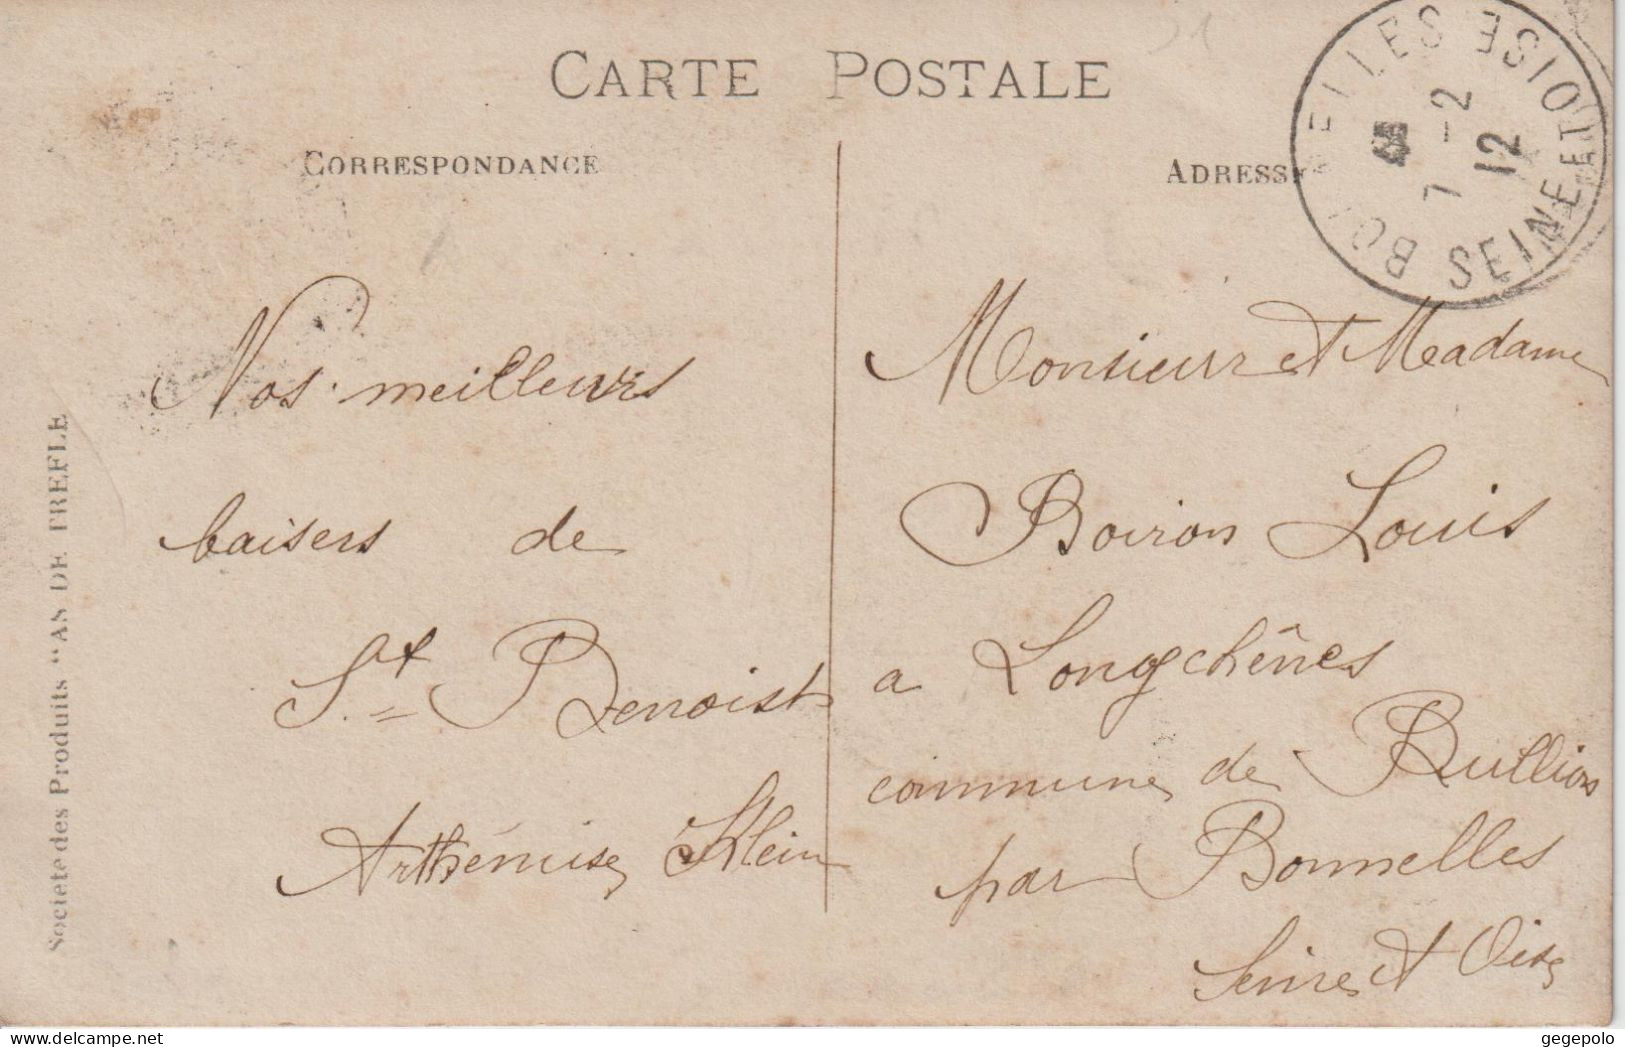 CARTE POSTALE
CORRESPONDANCE
Nos meilleurs
baisers de
St. Benoist
Arthémise Klein
Société des Produits "AS DE TREFLE
ADRESSE
BONNELLES SEINE ET OISE
7 -2
12
Monsieur et Madame
Boiron Louis
a Longchênes
commune de Bullion
par Bonnelles
Seine et Oise
gegepolo